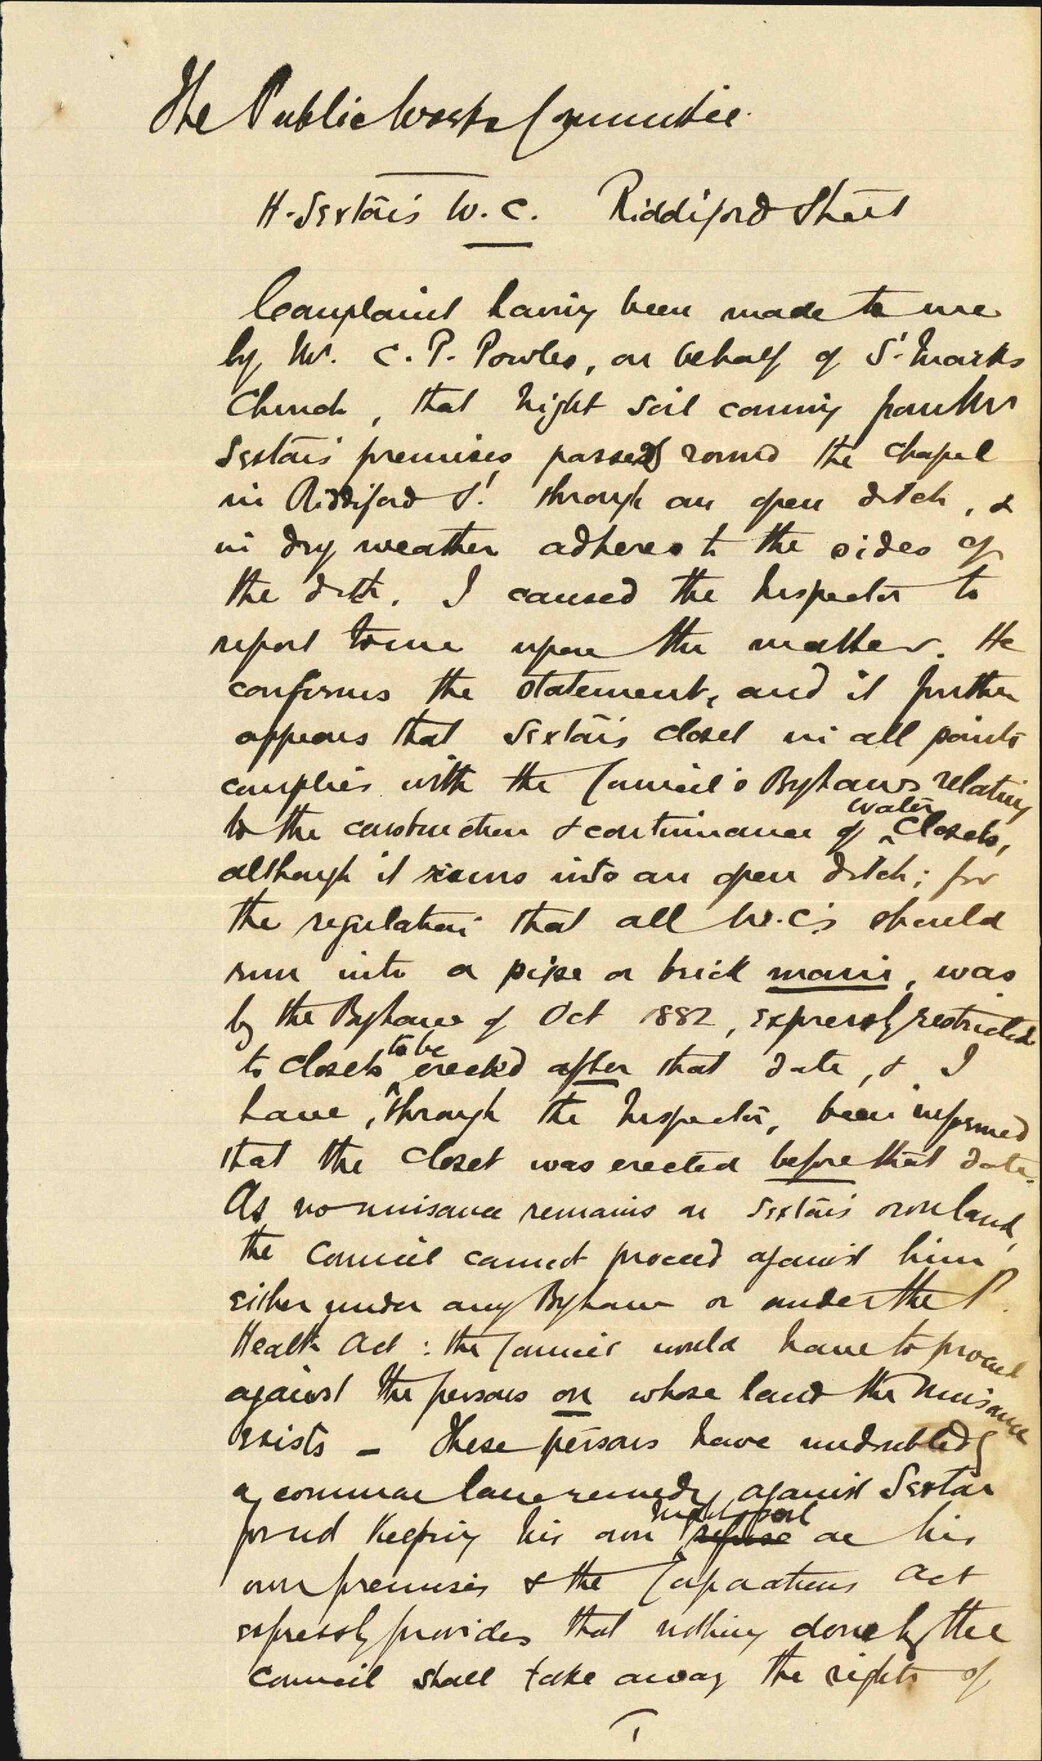 The Public Works Committee
H. Sextōn's W.C. Riddiford Street
Complaint having been made to me
by Mr. C. P. Powles, on behalf of St. Marks
Church, that night soil coming from Mr
Sextōn's premises passed round the chapel
in Riddiford St. through an open ditch, &
in dry weather adheres to the sides of
the ditch. I caused the Inspector to
report to me upon the matter. He
confirms the statement, and it further
appears that Sextōn's closet in all points
complies with the Council's Byelaws relating
to the construction & continuance of water closets,
although it runs into an open ditch; for
the regulation that all W.C's should
run into a pipe or brick main, was
by the Byelaw of Oct 1882, expressly restricted
to closets to be erected after that date, & I
have, through the Inspector, been informed
that the closet was erected before that date.
As no nuisance remains on Sextōn's own land,
the Council cannot proceed against him
either under any Byelaw or under the P.
Health Act: the Council would have to proceed
against the persons on whose land the nuisance
exists — These persons have undoubtedly
a common law remedy against Sexton
for not keeping his own refuse night soil on his
own premises & the Corporations Act
expressly provides that nothing done by the
Council shall take away the rights of
1